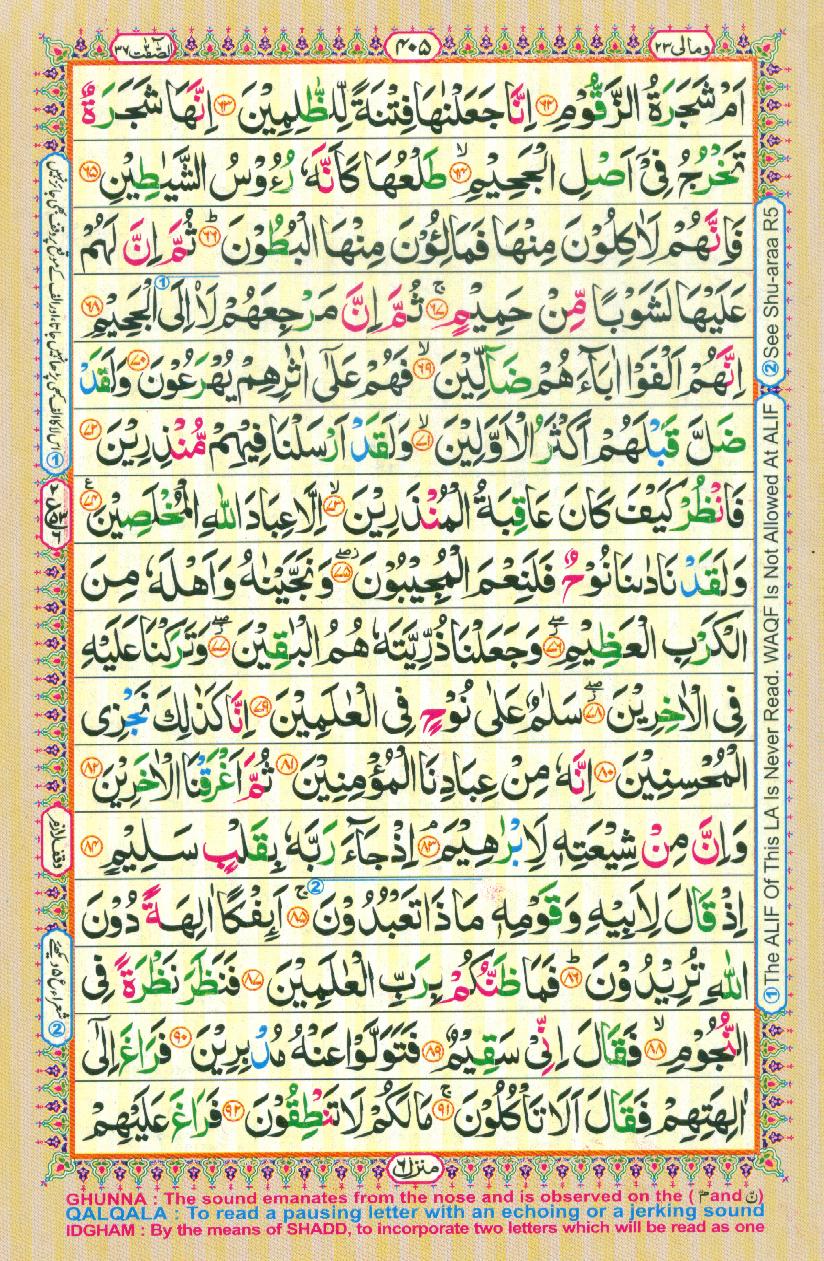 ومالى ٢٣
٤٠٥
الصّٰفّٰت ٣٧
اَمْ شَجَرَةُ الزَّقُّوْمِ ٦٢ اِنَّا جَعَلْنٰهَا فِتْنَةً لِّلظّٰلِمِيْنَ ٦٣ اِنَّهَا شَجَرَةٌ
تَخْرُجُ فِيْٓ اَصْلِ الْجَحِيْمِۙ ٦٤ طَلْعُهَا كَاَنَّهٗ رُءُوْسُ الشَّيٰطِيْنِ ٦٥
فَاِنَّهُمْ لَاٰكِلُوْنَ مِنْهَا فَمَالِـُٔوْنَ مِنْهَا الْبُطُوْنَؕ ٦٦ ثُمَّ اِنَّ لَهُمْ
عَلَيْهَا لَشَوْبًا مِّنْ حَمِيْمٍۚ ٦٧ ثُمَّ اِنَّ مَرْجِعَهُمْ لَا۟اِلَى الْجَحِيْمِ ٦٨
اِنَّهُمْ اَلْفَوْا اٰبَآءَهُمْ ضَآلِّيْنَۙ ٦٩ فَهُمْ عَلٰٓى اٰثٰرِهِمْ يُهْرَعُوْنَ ٧٠ وَلَقَدْ
ضَلَّ قَبْلَهُمْ اَكْثَرُ الْاَوَّلِيْنَۙ ٧١ وَلَقَدْ اَرْسَلْنَا فِيْهِمْ مُّنْذِرِيْنَ ٧٢
فَانْظُرْ كَيْفَ كَانَ عَاقِبَةُ الْمُنْذَرِيْنَۙ ٧٣ اِلَّا عِبَادَ اللّٰهِ الْمُخْلَصِيْنَ ٧٤
وَلَقَدْ نَادٰىنَا نُوْحٌ فَلَنِعْمَ الْمُجِيْبُوْنَ ٧٥ وَنَجَّيْنٰهُ وَاَهْلَهٗ مِنَ
الْكَرْبِ الْعَظِيْمِ ٧٦ وَجَعَلْنَا ذُرِّيَّتَهٗ هُمُ الْبٰقِيْنَ ٧٧ وَتَرَكْنَا عَلَيْهِ
فِى الْاٰخِرِيْنَ ٧٨ سَلٰمٌ عَلٰى نُوْحٍ فِى الْعٰلَمِيْنَ ٧٩ اِنَّا كَذٰلِكَ نَجْزِى
الْمُحْسِنِيْنَ ٨٠ اِنَّهٗ مِنْ عِبَادِنَا الْمُؤْمِنِيْنَ ٨١ ثُمَّ اَغْرَقْنَا الْاٰخَرِيْنَ ٨٢
وَاِنَّ مِنْ شِيْعَتِهٖ لَاِبْرٰهِيْمَۘ ٨٣ اِذْ جَآءَ رَبَّهٗ بِقَلْبٍ سَلِيْمٍ ٨٤
اِذْ قَالَ لِاَبِيْهِ وَقَوْمِهٖ مَاذَا تَعْبُدُوْنَۚ ٨٥ اَئِفْكًا اٰلِهَةً دُوْنَ
اللّٰهِ تُرِيْدُوْنَؕ ٨٦ فَمَا ظَنُّكُمْ بِرَبِّ الْعٰلَمِيْنَ ٨٧ فَنَظَرَ نَظْرَةً فِى
النُّجُوْمِۙ ٨٨ فَقَالَ اِنِّيْ سَقِيْمٌ ٨٩ فَتَوَلَّوْا عَنْهُ مُدْبِرِيْنَ ٩٠ فَرَاغَ اِلٰٓى
اٰلِهَتِهِمْ فَقَالَ اَلَا تَاْكُلُوْنَۚ ٩١ مَا لَكُمْ لَا تَنْطِقُوْنَ ٩٢ فَرَاغَ عَلَيْهِمْ
منزل ٦
① The ALIF Of This LA Is Never Read. WAQF Is Not Allowed At ALIF
② See Shu-araa R5
وقف لازم
GHUNNA : The sound emanates from the nose and is observed on the ( مّ and نّ )
QALQALA : To read a pausing letter with an echoing or a jerking sound
IDGHAM : By the means of SHADD, to incorporate two letters which will be read as one